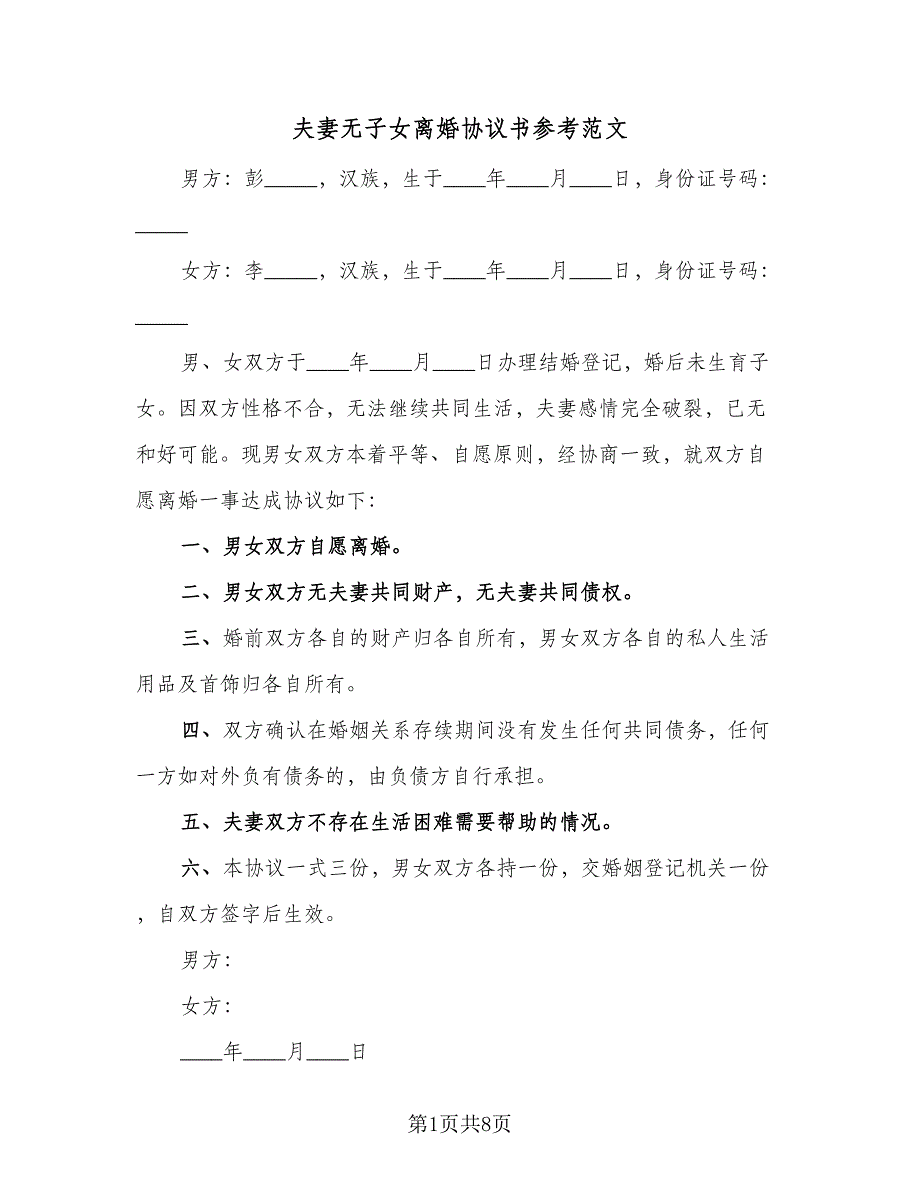 夫妻无子女离婚协议书参考范文
男方：彭_____，汉族，生于____年____月____日，身份证号码：
_____
女方：李_____，汉族，生于____年____月____日，身份证号码：
_____
男、女双方于____年____月____日办理结婚登记，婚后未生育子
女。因双方性格不合，无法继续共同生活，夫妻感情完全破裂，已无
和好可能。现男女双方本着平等、自愿原则，经协商一致，就双方自
愿离婚一事达成协议如下：
一、男女双方自愿离婚。
二、男女双方无夫妻共同财产，无夫妻共同债权。
三、婚前双方各自的财产归各自所有，男女双方各自的私人生活
用品及首饰归各自所有。
四、双方确认在婚姻关系存续期间没有发生任何共同债务，任何
一方如对外负有债务的，由负债方自行承担。
五、夫妻双方不存在生活困难需要帮助的情况。
六、本协议一式三份，男女双方各持一份，交婚姻登记机关一份
，自双方签字后生效。
男方：
女方：
____年____月____日
第1页共8页